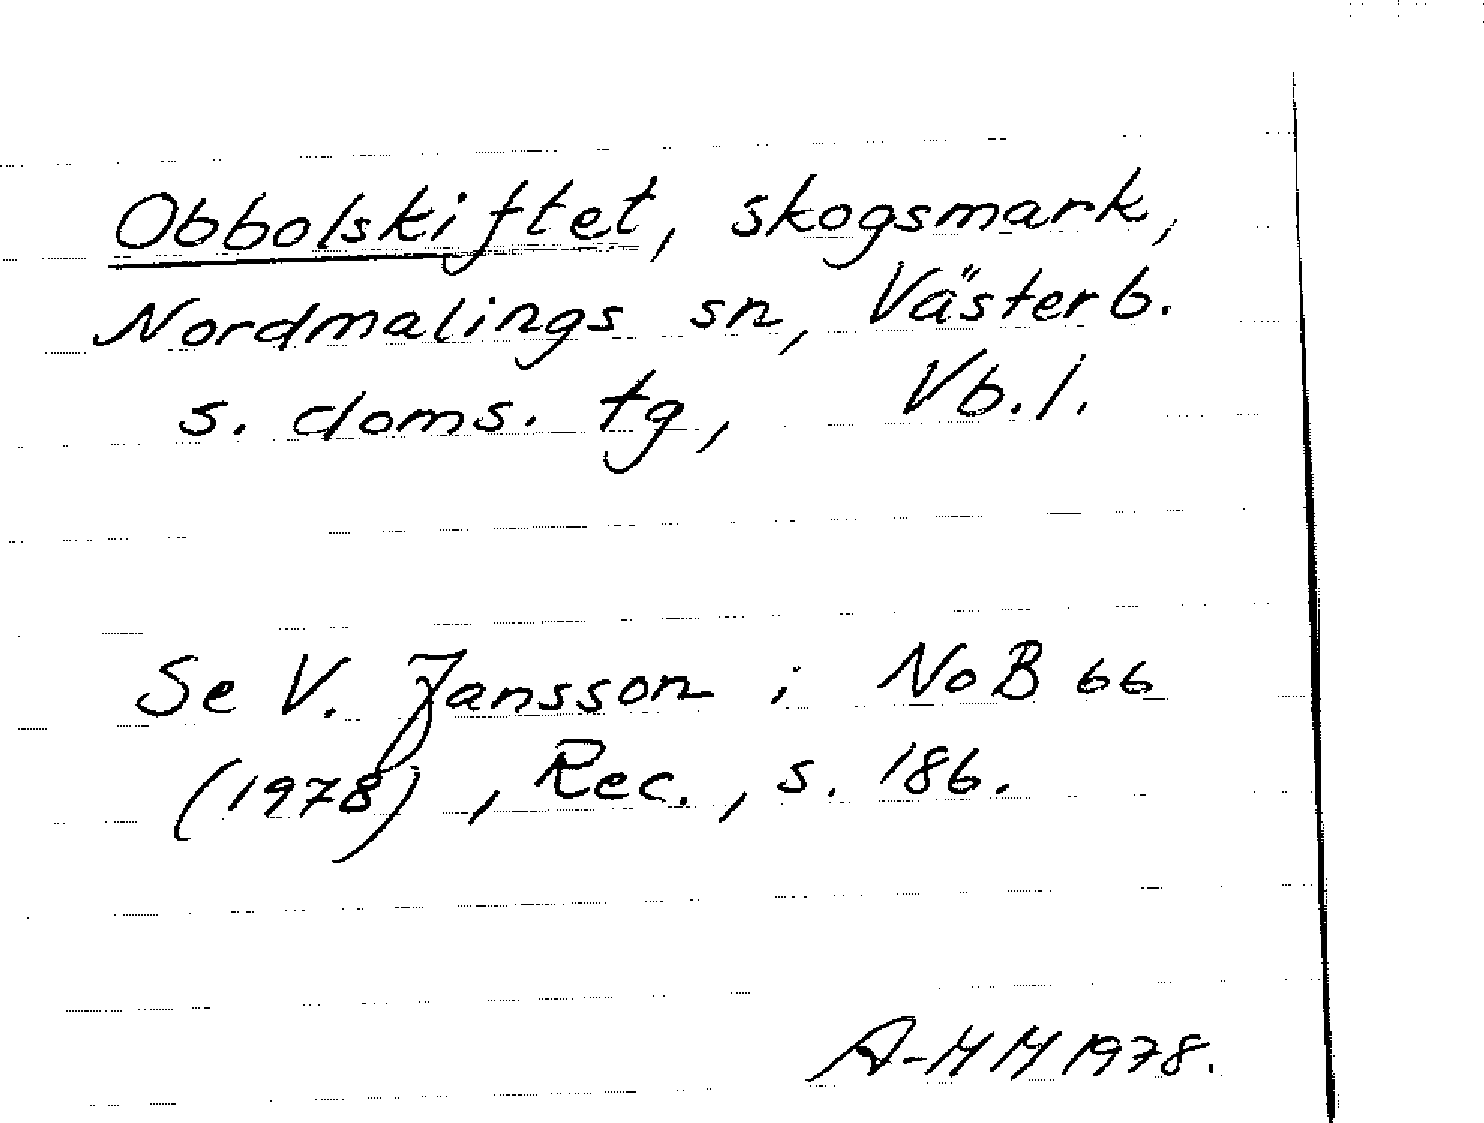 Obbolskiftet, skogsmark,
Nordmalings sn, Västerb.
s. doms. tg, Vb.l.
Se V. Jansson i NoB 66
(1978), Rec., s. 186.
A-MM 1978.